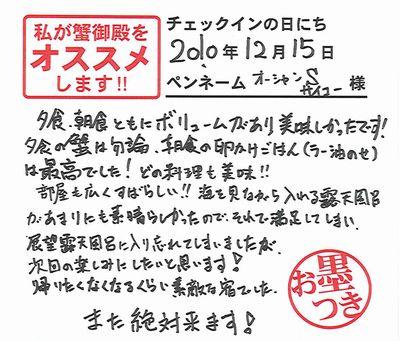 私が蟹御殿を
オススメ
します!!
チェックインの日にち
2010年12月15日
ペンネーム オーシャンS サイコー 様
夕食、朝食ともにボリュームがあり、美味しかったです!
夕食の蟹は勿論、朝食の卵かけごはん(ラー油のせ)
は最高でした! どの料理も美味!!
部屋も広くすばらしい!! 海を見ながら入れる露天風呂
があまりにも素晴らしかったので、それで満足してしまい、
展望露天風呂に入り忘れてしまいましたが、
次回の楽しみにしたいと思います!
帰りたくなくなるくらい素敵な宿でした。
また絶対来ます!
お墨つき